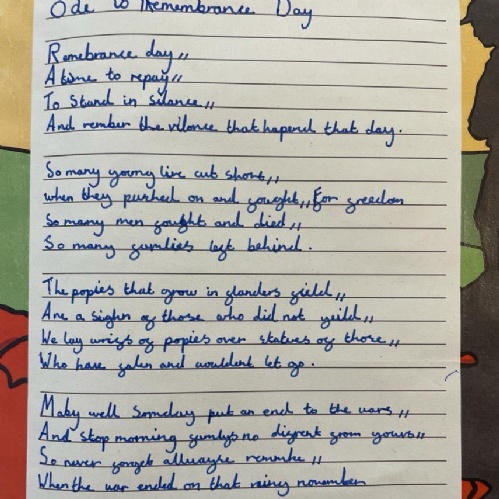 Ode to Remembrance Day
Remebrance day,,
A time to repay,,
To stand in silance,,
And rember the vilonce that hapend that day.
So many young live cut short,,
when they pushed on and fought,, For freedom
So many men fought and died,,
So many families left behind.
The popies that grow in flanders field,,
Are a sighn of those who did not yeild,,
We lay of popies over statues of those,,
Who have falen and wouldent let go.
Maby well Someday put an end to the wars,,
And stop morning no from yours,,
So never forget allwayse,,
When the war ended on that rainy november